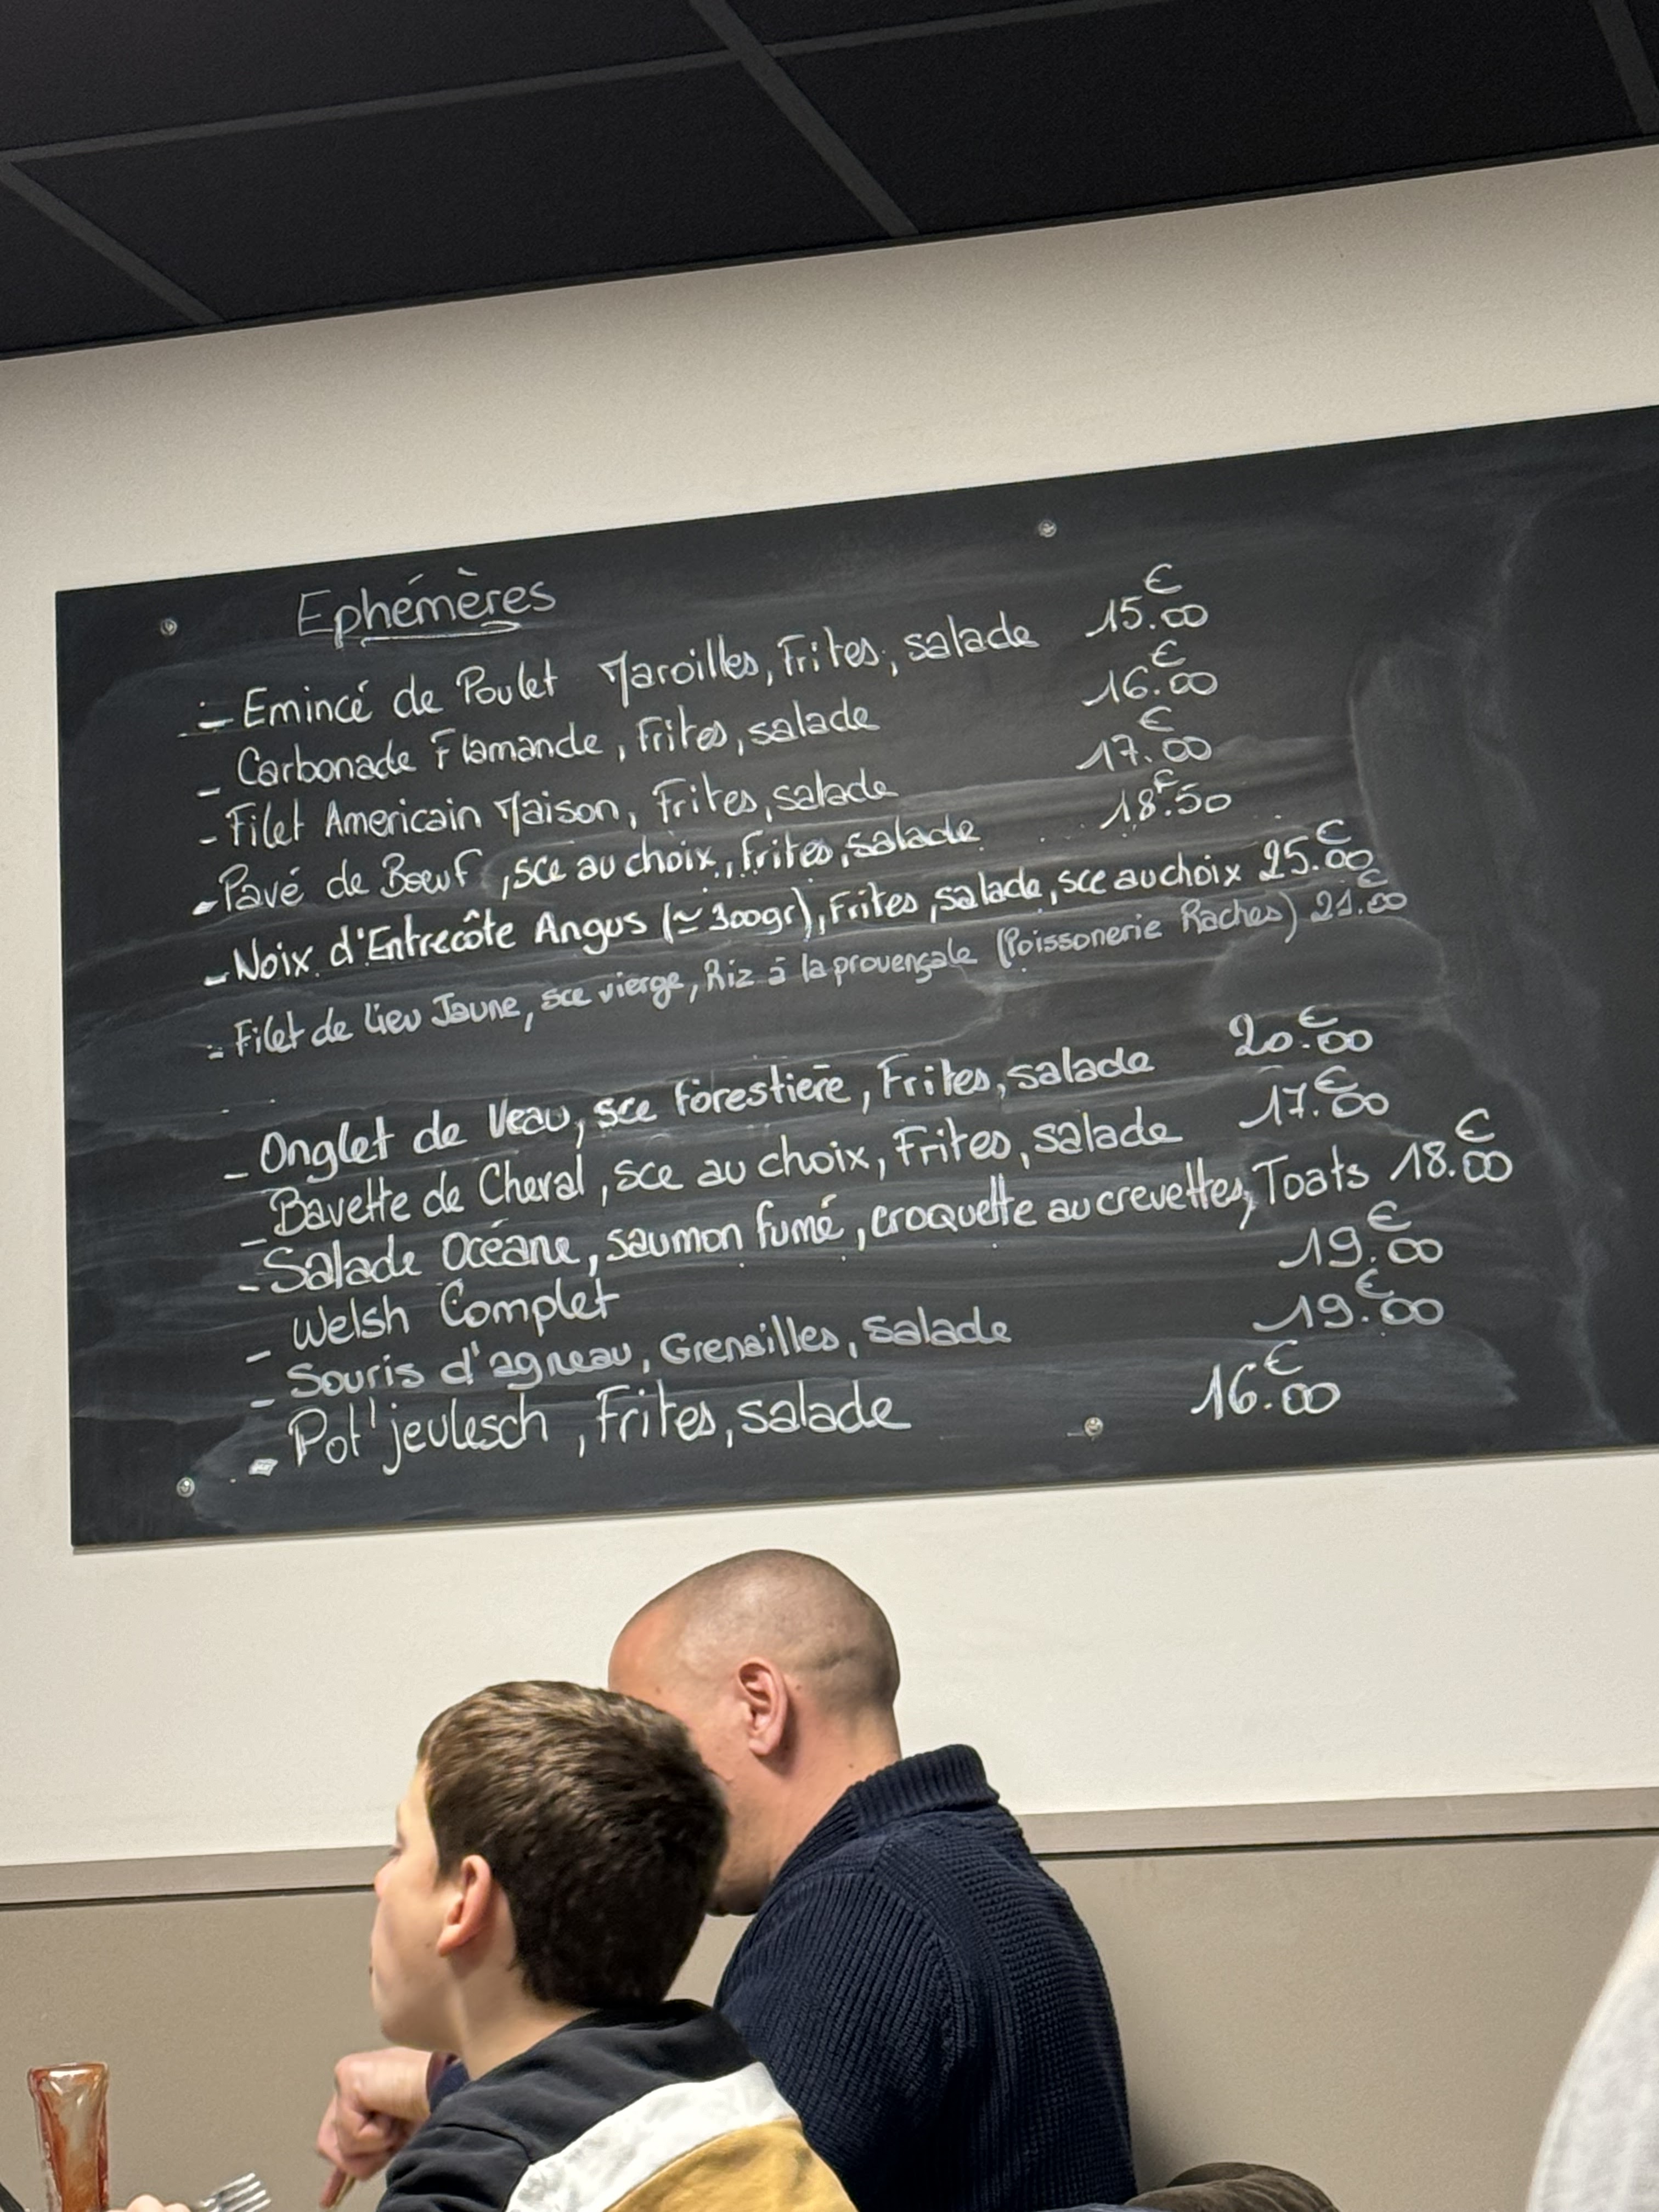 Ephémères
- Emincé de Poulet Maroilles, Frites, salade 15.€00
- Carbonade Flamande, Frites, salade 16.€00
- Filet Americain Maison, Frites, salade 17.€00
- Pavé de Boeuf, sce au choix, Frites, salade 18.€50
- Noix d'Entrecôte Angus (≃ 300gr), Frites, salade, sce au choix 25.€00
- Filet de lieu Jaune, sce vierge, Riz à la provençale (Poissonerie Raches) 21.€00
- Onglet de Veau, sce Forestière, Frites, salade 20.€00
- Bavette de Cheval, sce au choix, Frites, salade 17.€00
- Salade Océane, saumon fumé, croquette au crevettes, Toats 18.€00
- Welsh Complet 19.€00
- Souris d'agneau, Grenailles, salade 19.€00
- Pot'jeulesch, Frites, salade 16.€00